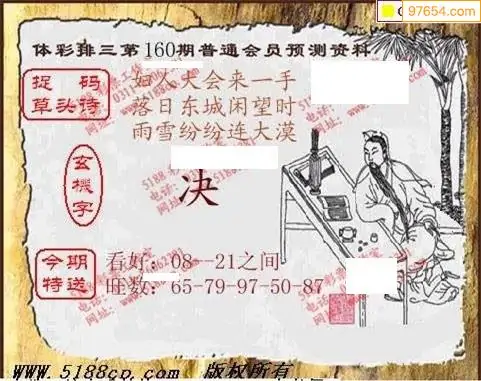 97654.com
体彩排三第160期普通会员预测资料
捉码
草头诗
如人大会来一手
落日东城闲望时
雨雪纷纷连大漠
玄機字
决
今期
特送
看好：08--21之间
旺数：65-79-97-50-87
www.5188cp.com 版权所有